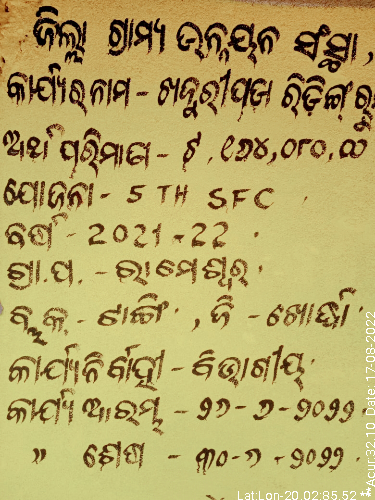 ଜିଲ୍ଲା ଗ୍ରାମ୍ୟ ଉନ୍ନୟନ ସଂସ୍ଥା,
କାର୍ଯ୍ୟର ନାମ - ଖଜୁରୀପଡା ରିଡ଼ିଙ୍ଗ୍ ରୁମ
ଅର୍ଥ ପରିମାଣ - ଟ.
ଯୋଜନା - 5TH SFC
ବର୍ଷ - 2021-22
ଗ୍ରା.ପ. - ରାମେଶ୍ୱର
ବ୍ଲକ୍ - ଟାଙ୍ଗି, ଜି - ଖୋର୍ଦ୍ଧା
କାର୍ଯ୍ୟନିର୍ବାହୀ - ବିଭାଗୀୟ
କାର୍ଯ୍ୟ ଆରମ୍ଭ -
" ଶେଷ -
Lat:Lon-20.02:85.52 **Acur:32.10 Date:17-08-2022